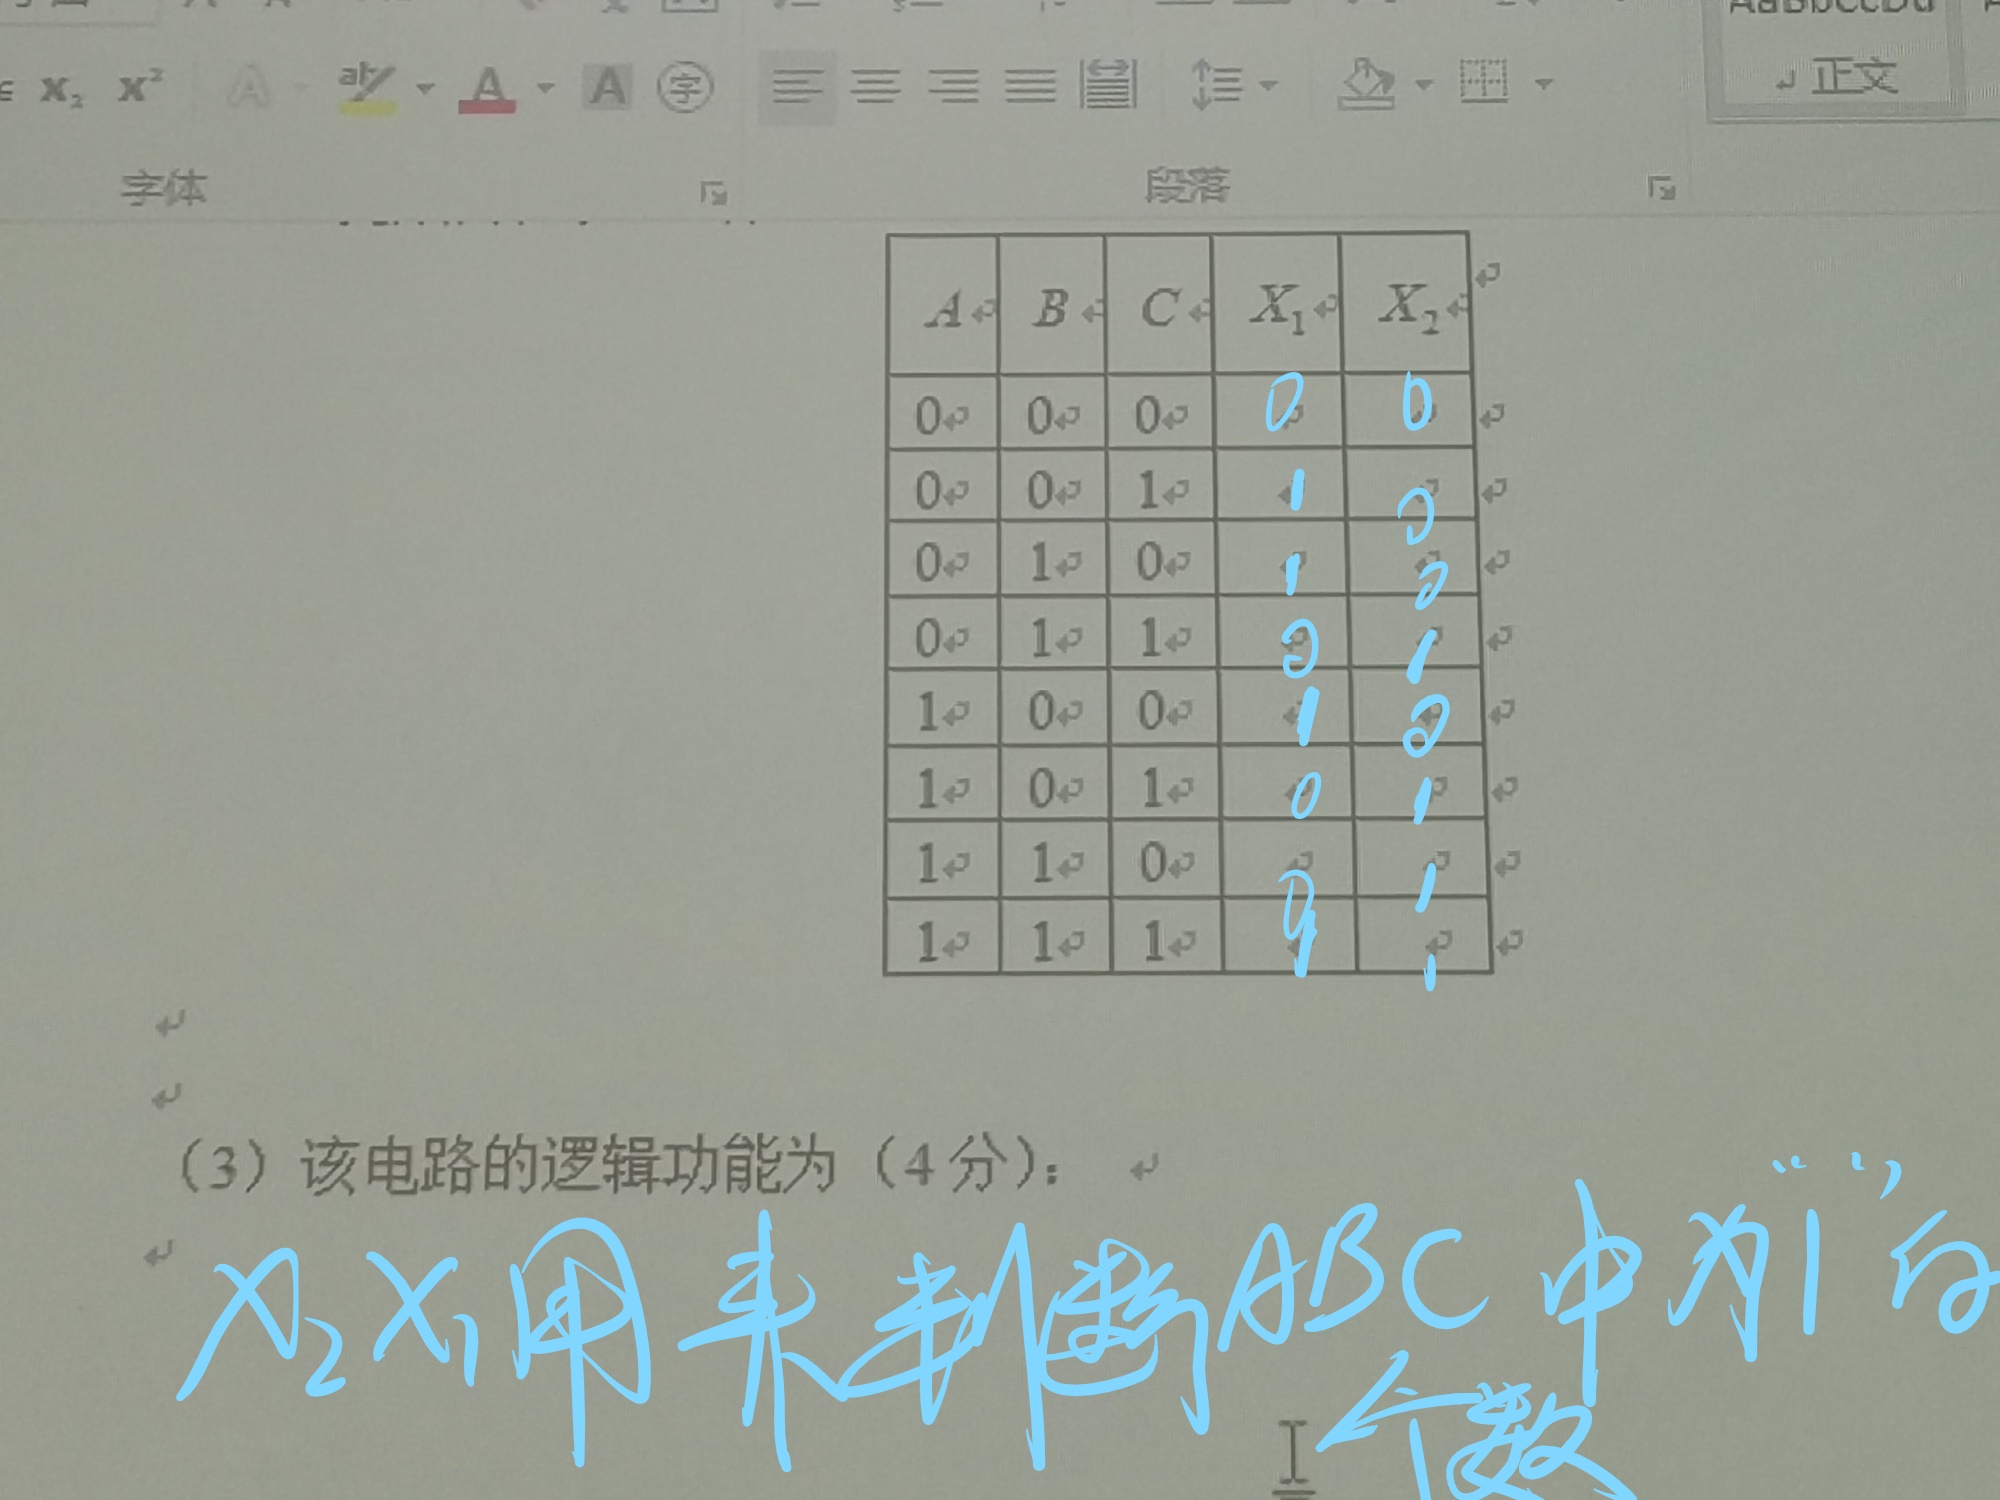 X₂ X² A A A 字 AaBbCcDd
正文
字体 段落
A B C X₁ X₂
0 0 0 0 0
0 0 1 1 0
0 1 0 1 0
0 1 1 0 1
1 0 0 1 0
1 0 1 0 1
1 1 0 0 1
1 1 1 1 1
（3）该电路的逻辑功能为（4 分）：
X₂X₁用来判断ABC中为“1”的
个数